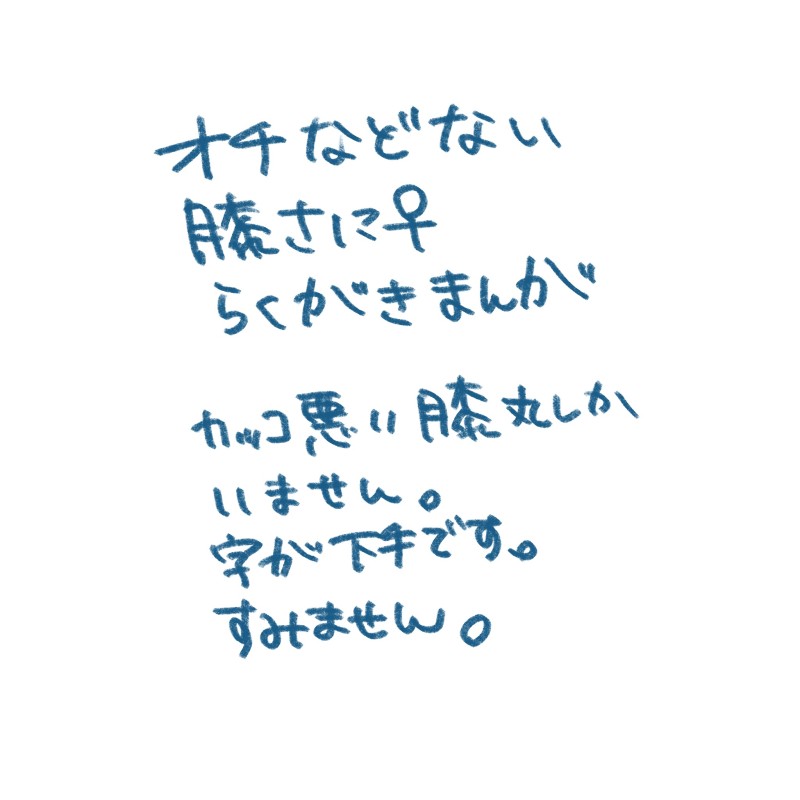 オチなどない
膝さに♀
らくがきまんが
カッコ悪い膝丸しか
いません。
字が下手です。
すみません。